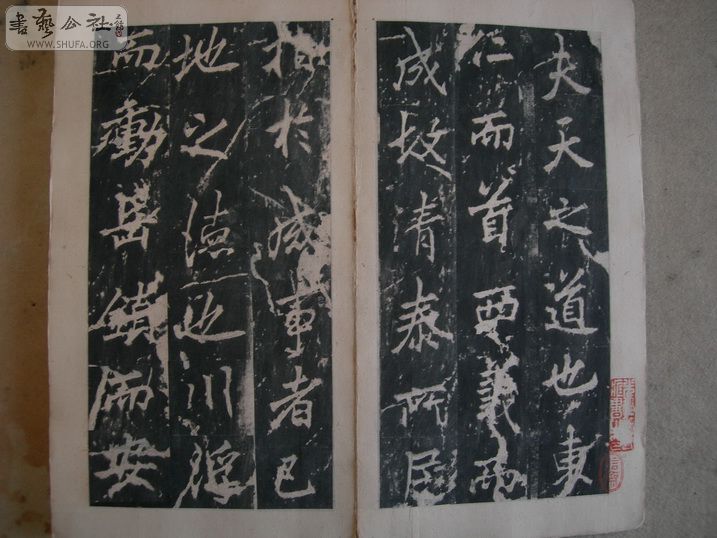 夫天之道也東
仁而首西義而
成故清泰所居
指於成事者已
地之德也川浮
而動岳鎮而安
書藝公社
WWW.SHUFA.ORG